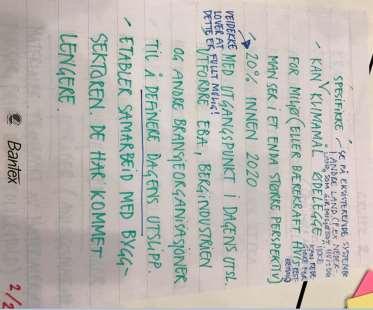 SPESIFIKKE
- SE PÅ EKSISTERENDE SYSTEMER
I ANDRE LAND (F.EKS. NEDER-
- KAN KLIMAMÅL ØDELEGGE
FOR MILJØ (ELLER BÆREKRAFT HVIS
MAN SER I ET ENDA STØRRE PERSPEKTIV)
20% INNEN 2020
VEIDEKKE
LOVER AT
DETTE ER FULLT MULIG!
MED UTGANGSPUNKT I DAGENS UTSL.
UTFORDRE EBA, BERGINDUSTRIEN
OG ANDRE BRANSJEORGANISASJONER
TIL Å DEFINERE DAGENS UTSLIPP.
- ETABLER SAMARBEID MED BYGG-
SEKTOREN. DE HAR KOMMET
LENGERE.
Bantex
2/2